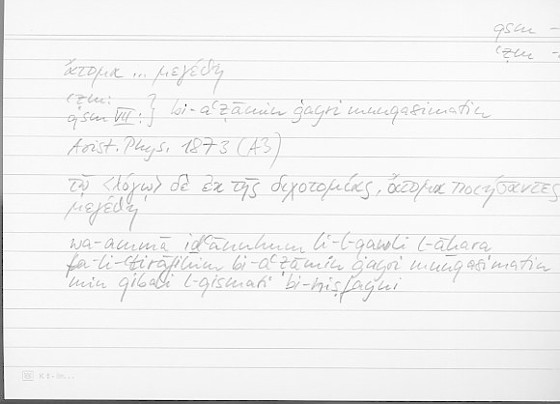 qsm –
ʿẓm –
ἄτομα ... μεγέθη
ʿẓm:
qsm VII: } bi-aʿẓāmin ġayri munqasimatin
Arist. Phys. 187a3 (A3)
τῷ <λόγῳ> δὲ ἐκ τῆς διχοτομίας, ἄτομα ποιήσαντες
μεγέθη
wa-ammā iḏʿānuhum li-l-qawli l-āḫara
fa-li-ʿtirāfihim bi-aʿẓāmin ġayri munqasimatin
min qibali l-qismati bi-niṣfayni